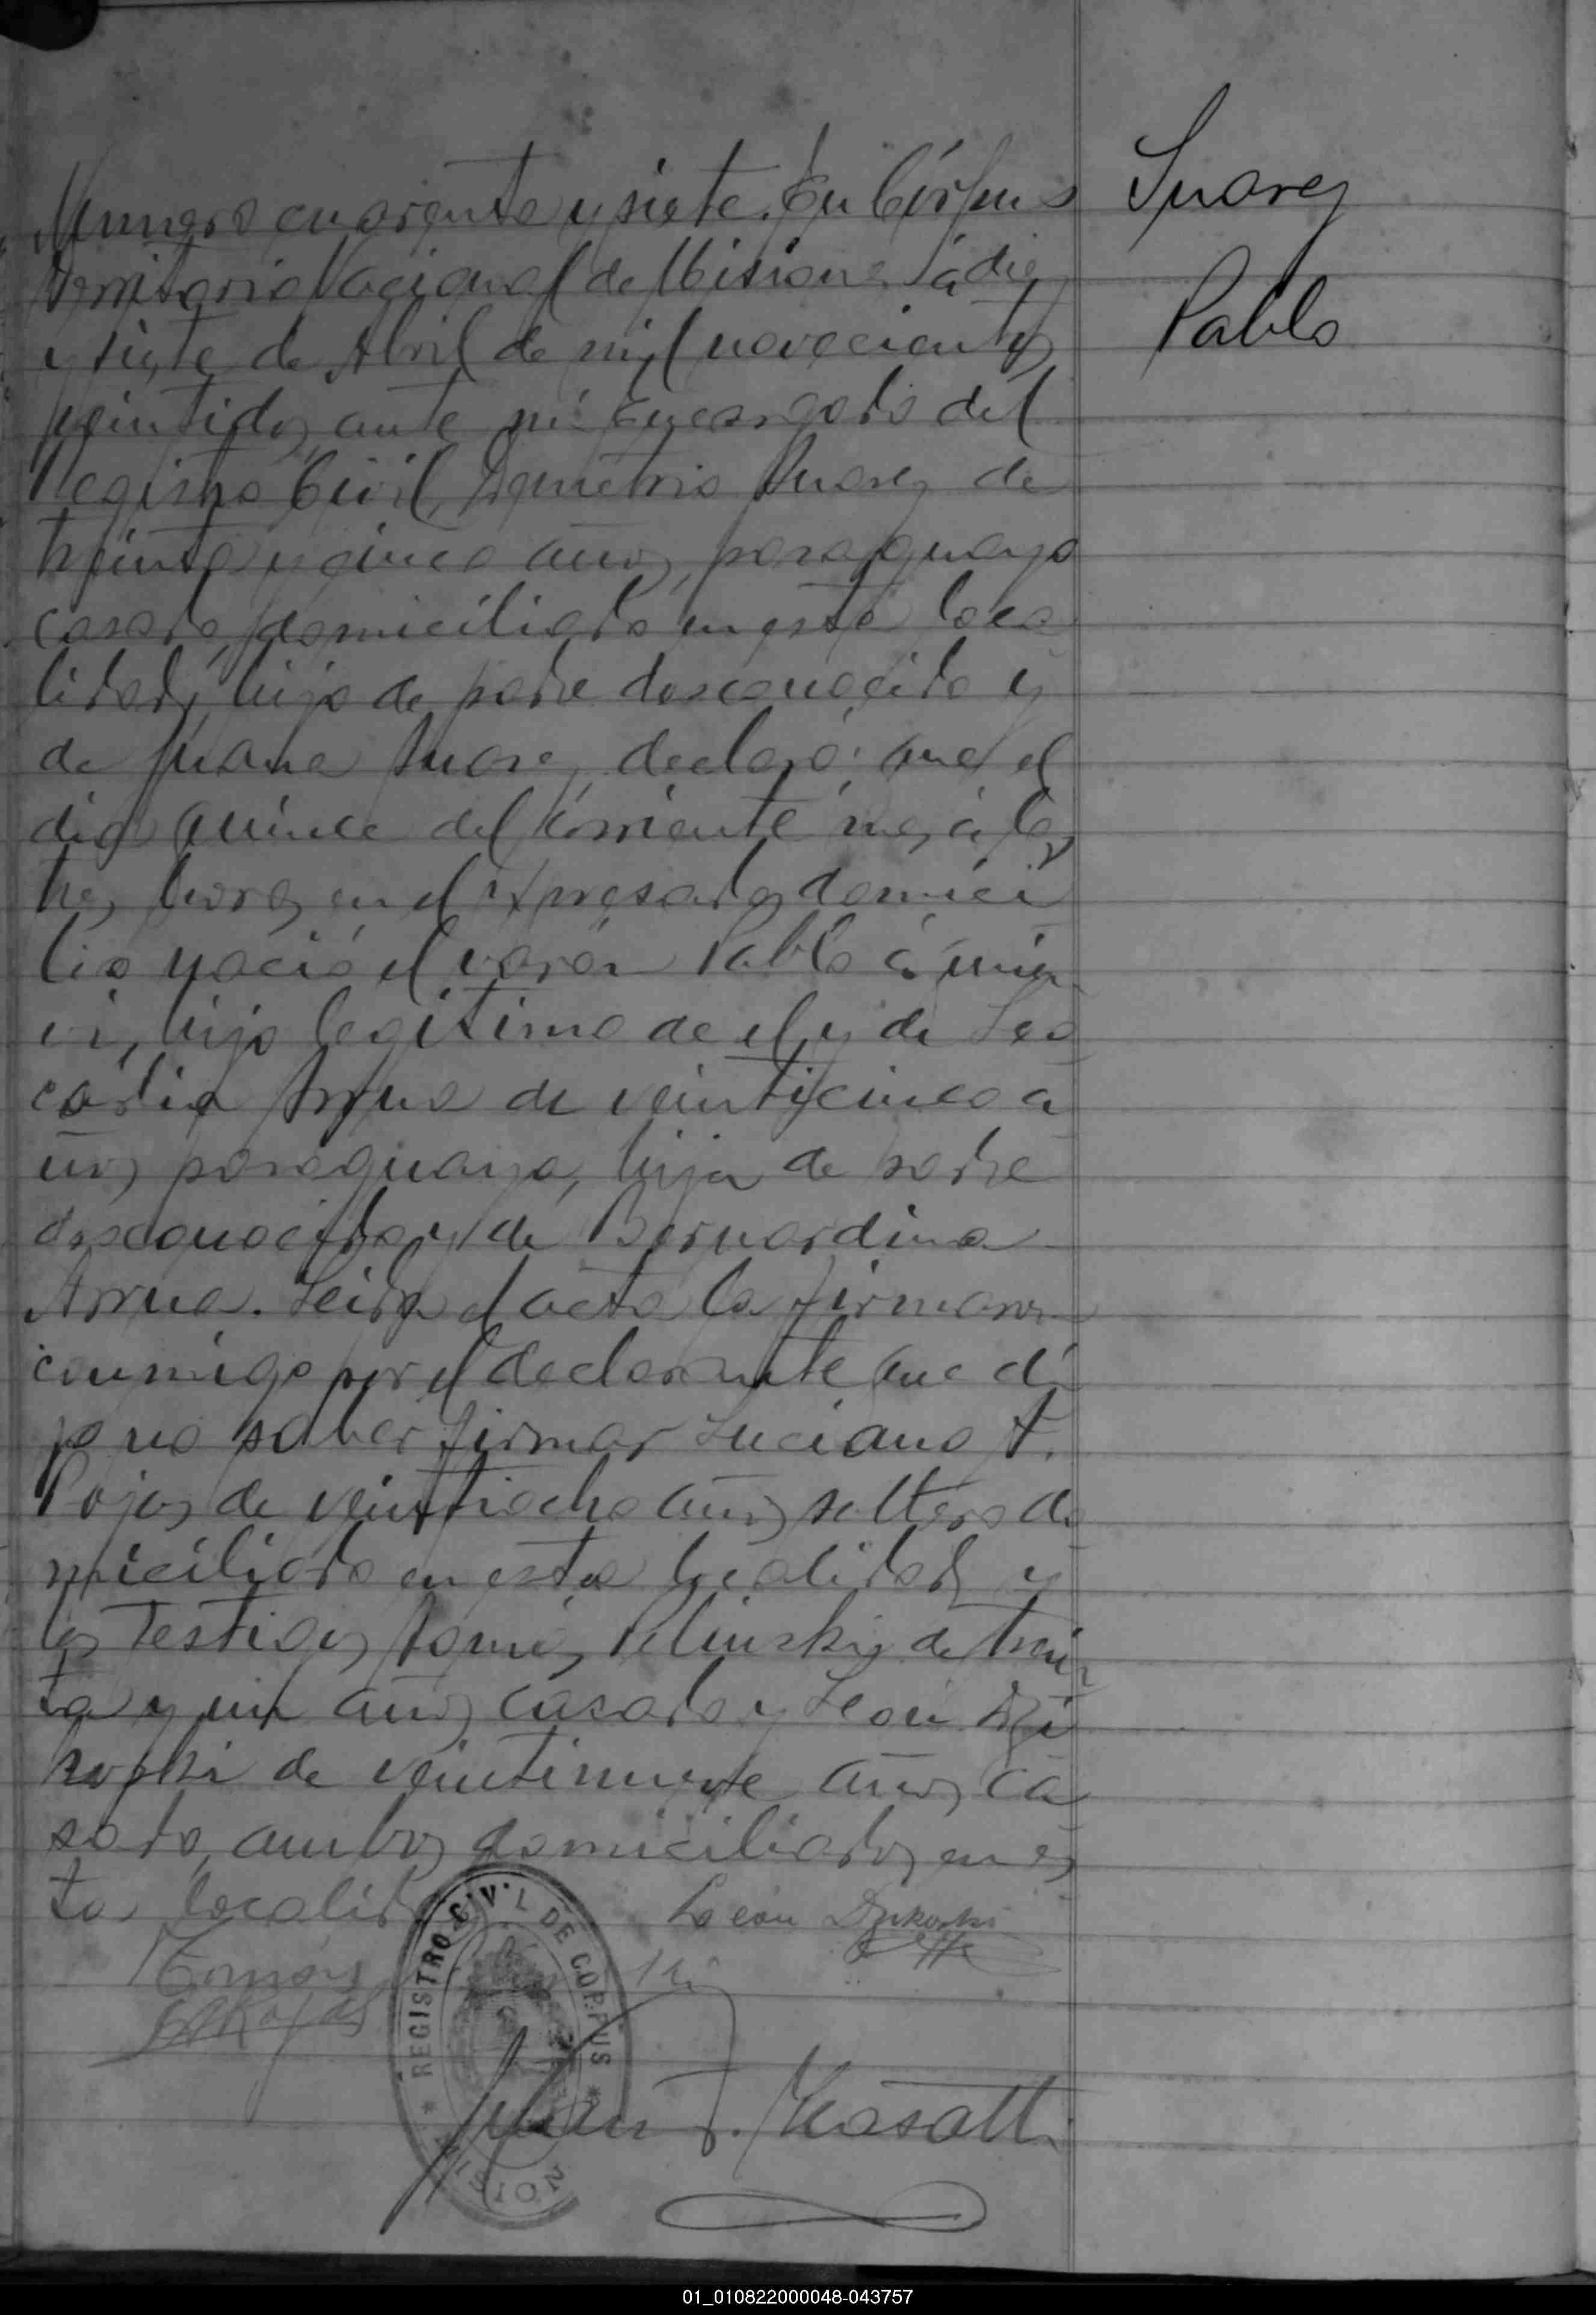 Suarez
Pablo
Numero cuarenta y siete. En Córpus
Territorio Nacional de Misiones á diez
y siete de Abril de mil novecientos
veintidos, ante mi Encargado del
Registro Civil, Demetrio Suarez de
treinta y cinco años, paraguayo
casado, domiciliado en esta loca
lidad, hijo de padre desconocido y
de Juana Suarez, declaró: que el
dia quince del corriente mes, á las
tres horas, en el expresado domici
lio nació el varón Pablo á quien
ví, hijo legítimo de el y de Leo
cádia Arrua de veinticinco a
ños, paraguaya, hija de padre
desconocido y de Bernardina
Arrua. Leida el acta la firmaron
conmigo por el declarante que di
jo no saber firmar Luciano A.
Rojas de veintiocho años, soltero do
miciliado en esta localidad y
los testigos, Tomás, Pelinski, de trein
ta y un años, casado y Leon Dzi
koski de veintinueve años, ca
sado, ambos domiciliados en es
ta localidad
Leon Dzikoski
Tomás
LARojas
REGISTRO CIVIL DE CORPUS
MISIONES
Juan J. Masatti
01_010822000048-043757